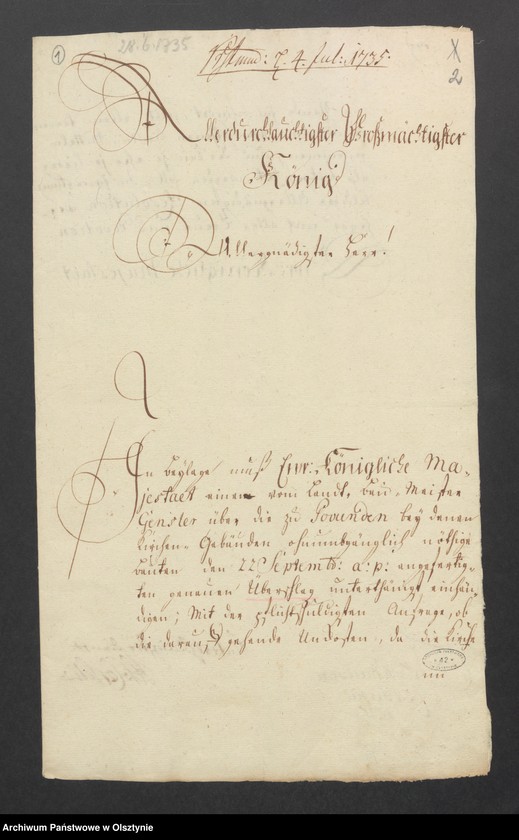 1
28.6.1735
Pstmd: d. 4. Jul: 1735.
X
2
Allerdurchlauchtigster Großmächtigster
König
Allergnädigster Herr!
In beylage muß Ewr: Königliche Ma-
jestaet einen vom Landt, bau-Meister
Genster über die zu Powunden bey denen
Kirchen-Gebäuden ohnumbgänglich nöthige
bauten den 22 Septembr: a: p: angefertig-
ten genauen Überschlag unterthänigst einhän-
digen; Mit der pflichtschuldigsten Anfrage, ob
die darauf gehende Unkosten, da die Kirche
42
nun
Archiwum Państwowe w Olsztynie